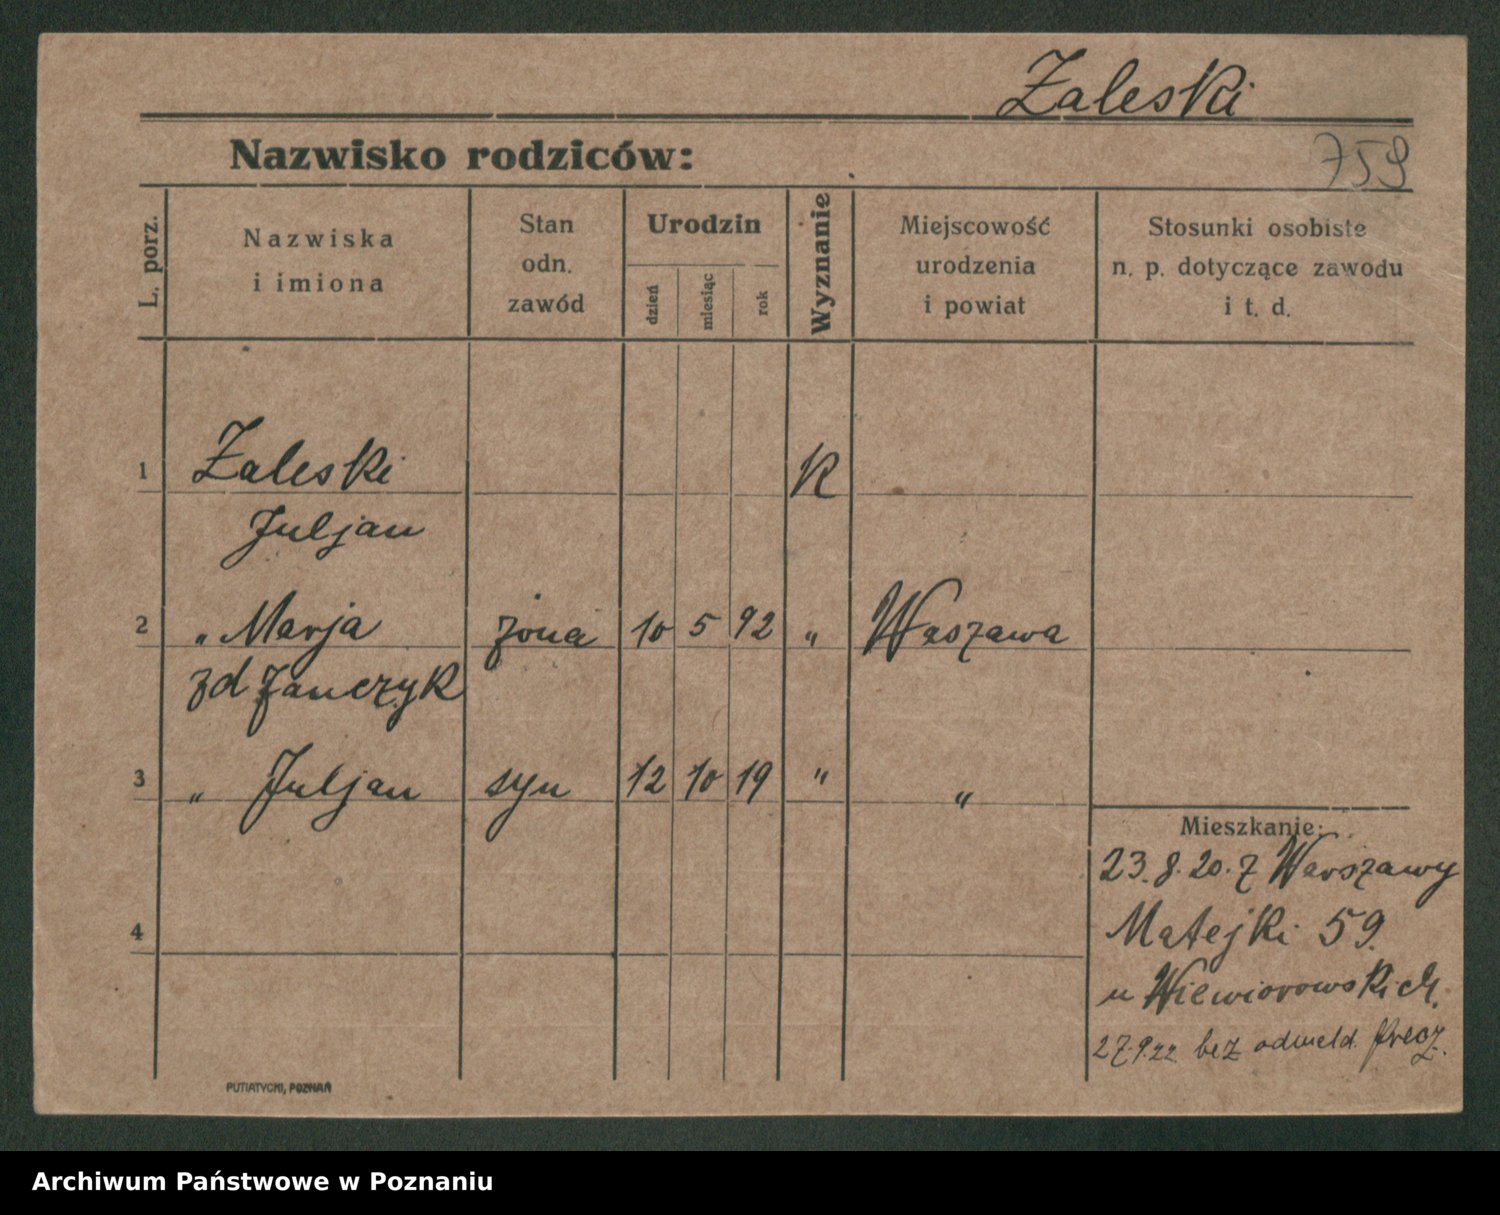 Zaleski
Nazwisko rodziców:
759
L. porz.
Nazwiska i imiona
Stan odn. zawód
Urodzin
dzień
miesiąc
rok
Wyznanie
Miejscowość urodzenia i powiat
Stosunki osobiste n. p. dotyczące zawodu i t. d.
1 Zaleski K
Juljan
2 „ Marja żona 10 5 92 „ Waszawa
zd Janczyk
3 „ Juljan syn 12 10 19 „ „
Mieszkanie:
23.8.20. z Warszawy
4
Matejki 59.
u Wiewiorowskich.
27.9.22 bez odmeld. precz.
PUTIATYCKI, POZNAŃ
Archiwum Państwowe w Poznaniu